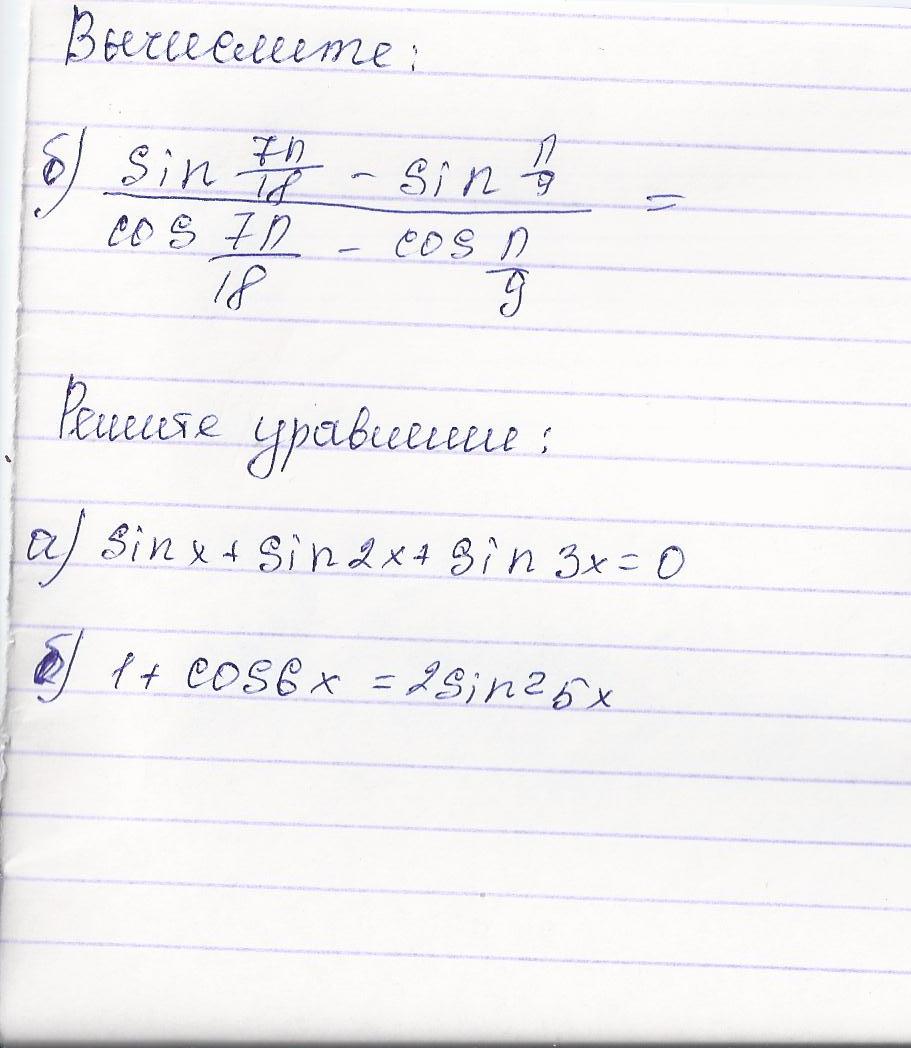 Вычислите:
б) (sin 7π/18 - sin π/9) / (cos 7π/18 - cos π/9) =
Решите уравнении:
а) sin x + sin 2x + sin 3x = 0
б) 1 + cos 6x = 2 sin² 5x